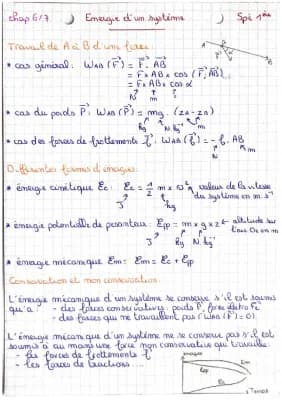 chap 6/7 Energie d'un système Spé 1ère
Travail de A à B d'une force
A
B
• cas général : WAB (F⃗) = F⃗ . AB⃗
= F × AB × cos (F⃗, AB⃗)
= F × AB × cos α
N m °
• cas du poids P⃗ : W (P⃗) = mg . (zA - zB)
kg N.kg⁻¹ m
• cas des forces de frottements f⃗ : WAB (f⃗) = - f . AB
N m
Différentes formes d'énergies :
• énergie cinétique Ec : Ec = 1/2 m × v² valeur de la vitesse
du système en m.s⁻¹
J kg
• énergie potentielle de pesanteur : Epp = m × g × z ← altitude sur
l'axe Oz en m
J kg N.kg⁻¹
• énergie mécanique Em : Em = Ec + Epp
Conservation et non conservation.
L'énergie mécanique d'un système se conserve s'il est soumis
qu'à : - des forces conservatives : poids P⃗, force électro F⃗e
- des forces qui ne travaillent pas (WAB (F⃗) = 0)
L'énergie mécanique d'un système ne se conserve pas s'il est
soumis à au moins une force non conservative qui travaille :
- les forces de frottements f⃗
- les forces de tractions ....
énergies
Em
Epp
Ec
Temps